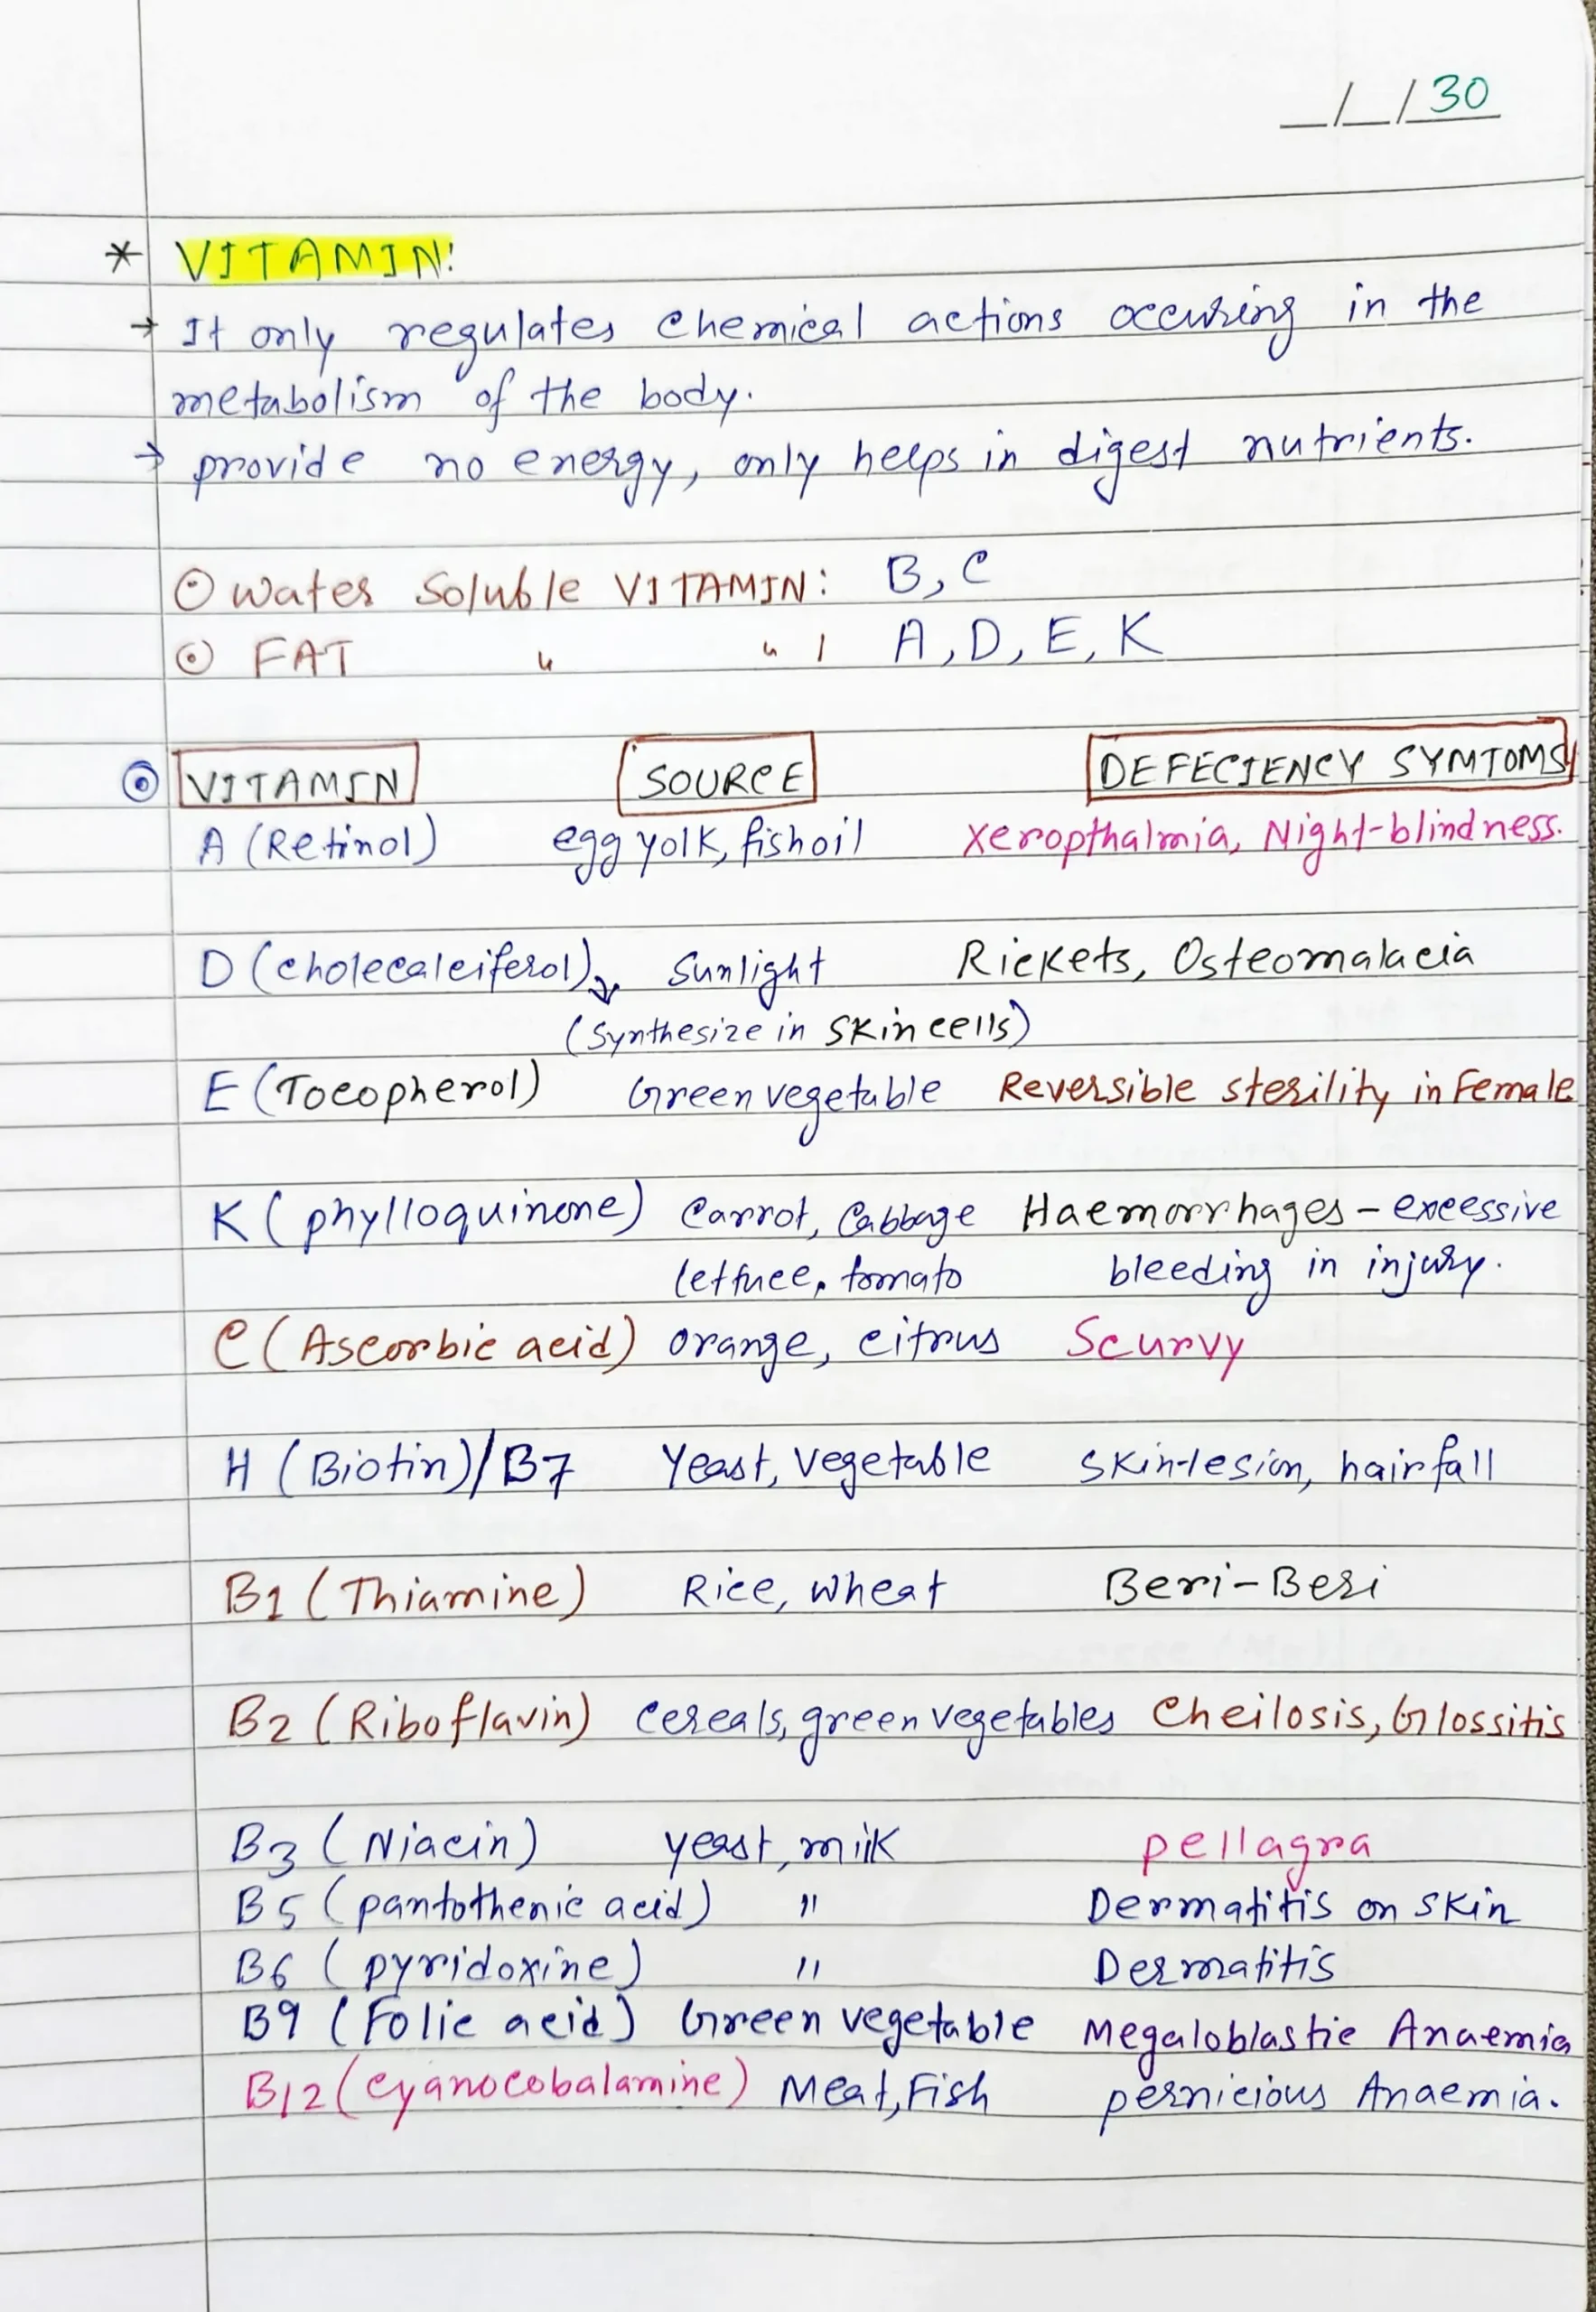 __/__/30
* VITAMIN:
→ It only regulates chemical actions occuring in the
metabolism of the body.
→ provide no energy, only helps in digest nutrients.
⊙ Water Soluble VITAMIN: B, C
⊙ FAT " " : A, D, E, K
⊙ VITAMIN SOURCE DEFECIENCY SYMTOMS
A (Retinol) egg yolk, fish oil Xeropthalmia, Night-blindness.
D (cholecalciferol) Sunlight Rickets, Osteomalacia
(Synthesize in skin cells)
E (Tocopherol) Green vegetable Reversible sterility in Female
K (phylloquinone) Carrot, Cabbage Haemorrhages - excessive
lettuce, tomato bleeding in injury.
C (Ascorbic acid) orange, citrus Scurvy
H (Biotin)/B7 Yeast, Vegetable Skin-lesion, hairfall
B1 (Thiamine) Rice, wheat Beri-Beri
B2 (Riboflavin) Cereals, green vegetables Cheilosis, Glossitis
B3 (Niacin) yeast, milk pellagra
B5 (pantothenic acid) " Dermatitis on skin
B6 (pyridoxine) " Dermatitis
B9 (Folic acid) Green vegetable Megaloblastic Anaemia
B12 (cyanocobalamine) Meat, Fish pernicious Anaemia.